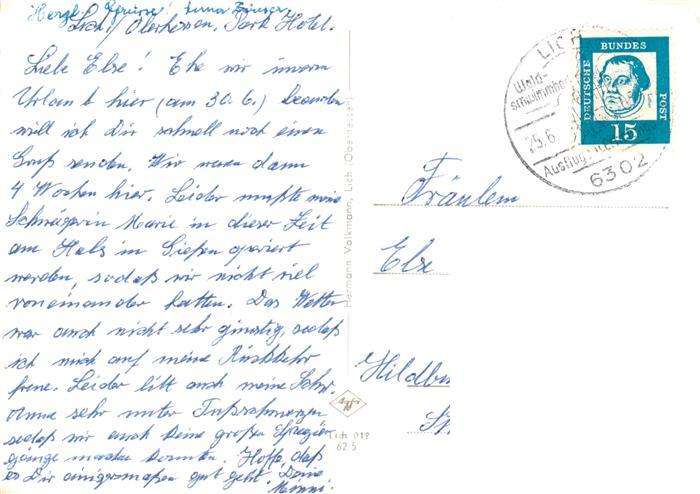 Herzl. Grüsse!
Lich / Oberhessen, Park Hotel.
Liebe Else! Ehe wir unseren
Urlaub hier (am 30.6.) beenden
will ich Dir schnell noch einen
Gruß senden. Wir waren dann
4 Wochen hier. Leider mußte meine
Schwägerin Marie in dieser Zeit
am Hals in Gießen operiert
werden, sodaß wir nicht viel
voneinander hatten. Das Wetter
war auch nicht sehr günstig, sodaß
ich mich auf meine Rückkehr
freue. Leider litt auch meine Schw.
Anne sehr unter Fußschmerzen
sodaß wir auch keine großen Spazier
gänge machen konnten. Hoffe, daß
es Dir einigermaßen gut geht. Deine
Minni.
Hermann Volkmann, Lich (Oberhessen)
Lich 019
62 5
LICH
Wald-
25.6.
Ausflug
6302
DEUTSCHE
BUNDES
POST
15
Fräulein
Else
Hildbu
St